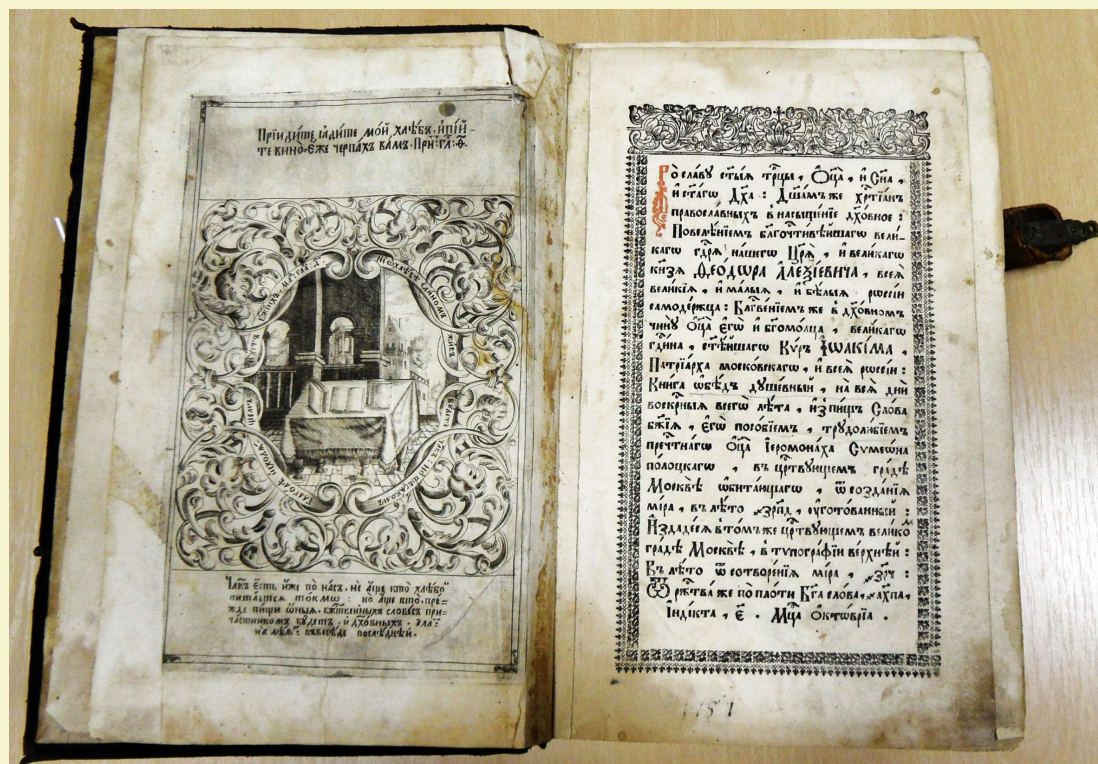 Прїиди́те, ꙗ҆ди́те мо́й хлѣ́бъ, и҆ пі́й-
те вино̀ є҆́же черпа́хъ ва́мъ. При҃: гл҃: ѳ҃.
Не ѡ҆ хлѣ́бѣ є҆ди́номъ жи́въ бꙋ́детъ человѣ́къ
глаго́лѣ и҆сходѧ́
Бж҃їихъ. Мѳ҃: гла: д҃.
Чл҃къ є҆́сть и҆́же по на́съ, не а҆́ще кто̀ хлѣ́бѡ
пита́етсѧ то́кмѡ: но а҆́ще кто̀ пре́-
жде пи́щи ѻ҆́ныѧ, бж҃твенныхъ слове́съ при-
ча́стникомъ бꙋ́детъ, и҆ дх҃о́вныхъ. Зла-
послѣ́дней.
Во сла́вꙋ ст҃ы́ѧ трⷪ҇цы, Ѻ҆ц҃а̀, и҆ Сн҃а,
и҆ ст҃а́гѡ Дх҃а: Дш҃а́мъ же хрⷭ҇тїа́нъ
правосла́вныхъ в насыще́нїе дх҃о́вное:
Повелѣ́нїемъ бл҃гочⷭ҇ти́вѣйшагѡ вели́-
кагѡ гдⷭ҇рѧ̀ на́шегѡ Цр҃ѧ̀, и҆ вели́кагѡ
кн҃зѧ Ѳ҆ео́дѡра А҆леѯі́евича, всеѧ̀
вели́кїѧ, и҆ ма́лыѧ, и҆ бѣ́лыѧ рѡссі́и
самоде́ржца: Блгⷭ҇ве́нїемъ же в дх҃о́вномъ
чи́нꙋ Ѻ҆ц҃а̀ є҆гѡ̀ и҆ бг҃омо́лца, вели́кагѡ
гдⷭ҇и́на, ст҃ѣ́йшагѡ Кѵ́ръ І҆ѡаки́ма,
Патрїа́рха моско́вскагѡ, и҆ всеѧ̀ рѡссі́и:
Кни́га ѡ҆бѣ́дъ дꙋше́вный, на всѧ̀ дни̑
воскрⷭ҇ныѧ всегѡ̀ лѣ́та, и҆з̾ пи́щъ Сло́ва
бж҃їѧ, є҆гѡ̀ посо́бїемъ, трꙋдолю́бїемъ
пречⷭ҇тна́гѡ Ѻ҆ц҃а̀ І҆еромона́ха Сѵмеѡ́на
по́лоцкагѡ, въ црⷭ҇твꙋющемъ гра́дѣ
Москвѣ̀ ѡ҆бита́ющагѡ, ѿ созда́нїѧ
мі́ра, въ лѣ́то ҂зр҃пд, ᲂу҆гото́ванный:
И҆здаде́сѧ в то́мъ же црⷭ҇твꙋющемъ вели́коⷨ
гра́дѣ Москвѣ̀, в тѵпогра́фїи ве́рхнѣй:
Въ лѣ́то ѿ сотворе́нїѧ мі́ра, ҂зр҃ч:
Ѿ ржⷭ҇тва́ же по пло́ти Бг҃а сло́ва, ҂ах҃па,
І҆нді́кта, є҃. Мцⷭ҇а Ѻ҆ктѡ́врїа.